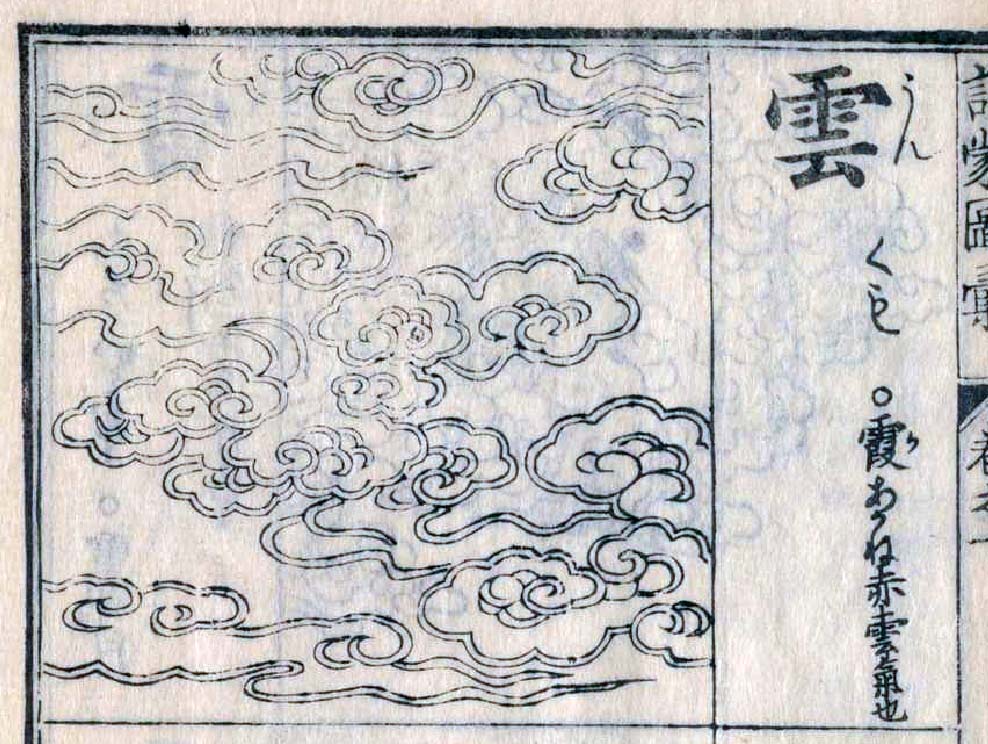 訓蒙圖彙 卷之一
うん
雲
くも
○霞 か あかね赤雲氣也